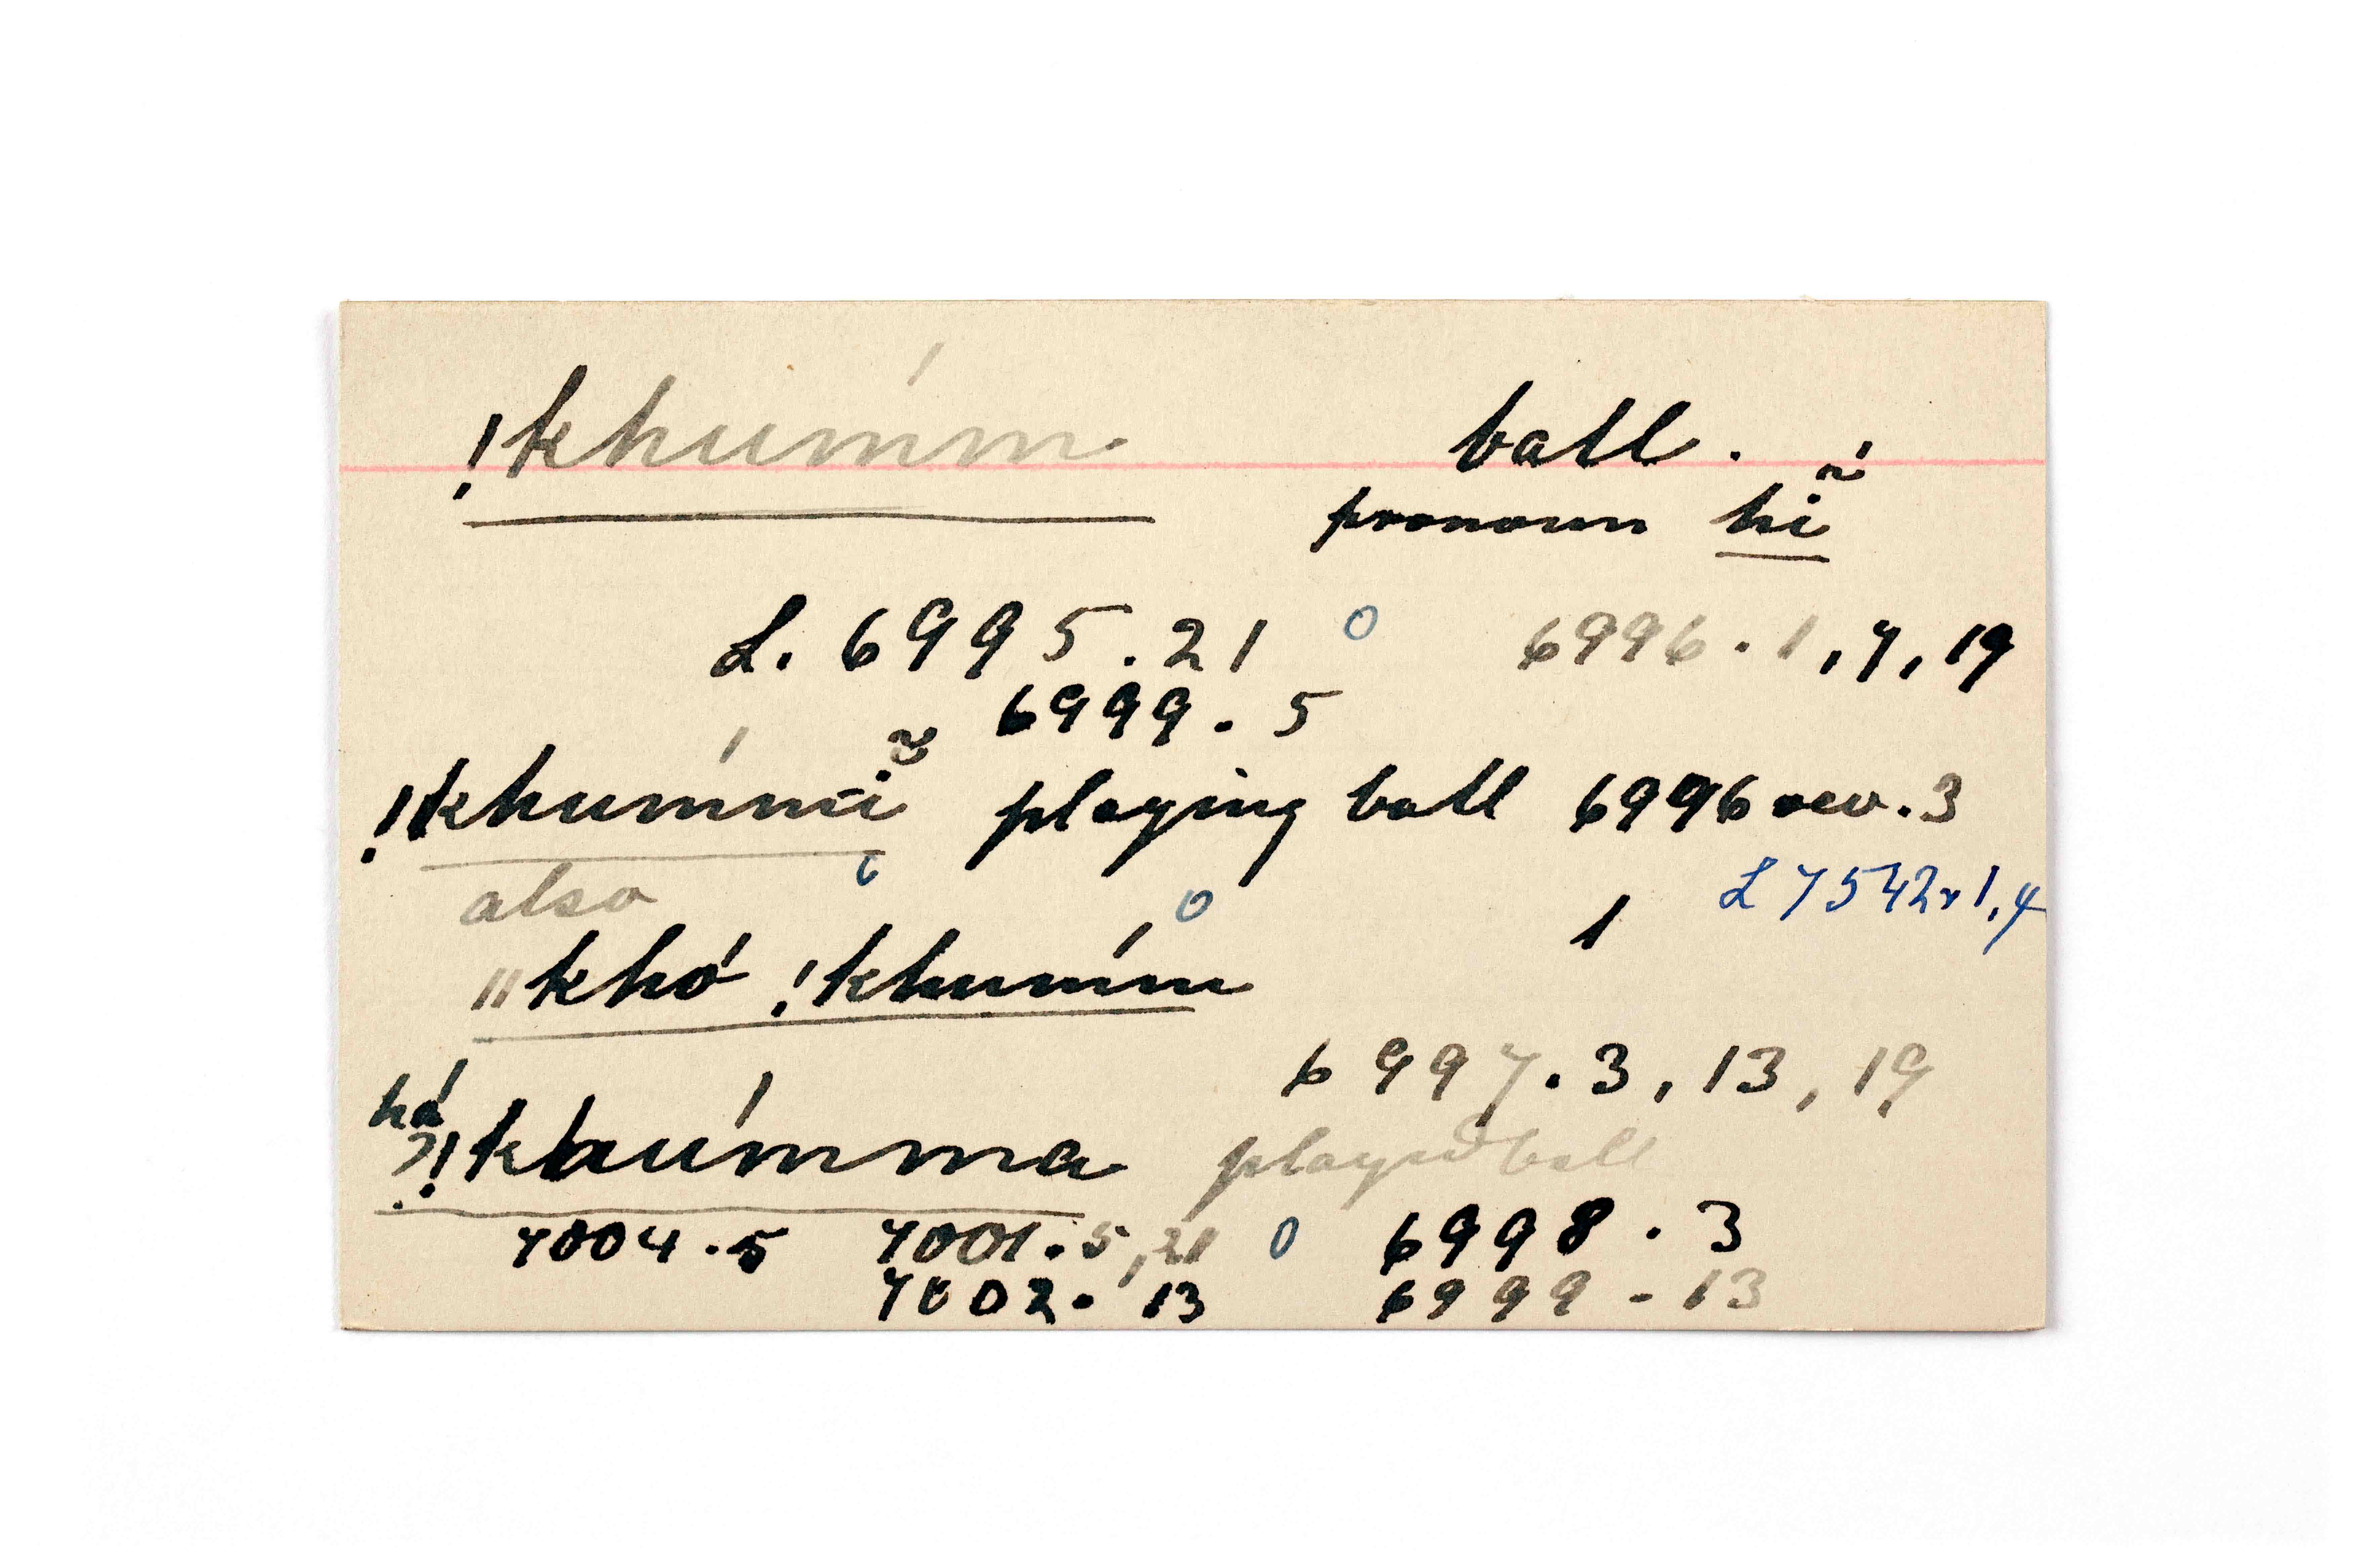 !khúmm ball.
pronoun hĩ́
L. 6995.21 o 6996.1,7,19
6999.5
!khúmmĩ playing ball 6996 rev.3
also o 1 L 7542v1,4
||khó !khúmm
6997.3,13,19
há
?!khúmma played ball
7004.5 7001.5,21 o 6998.3
7002.13 6999.13